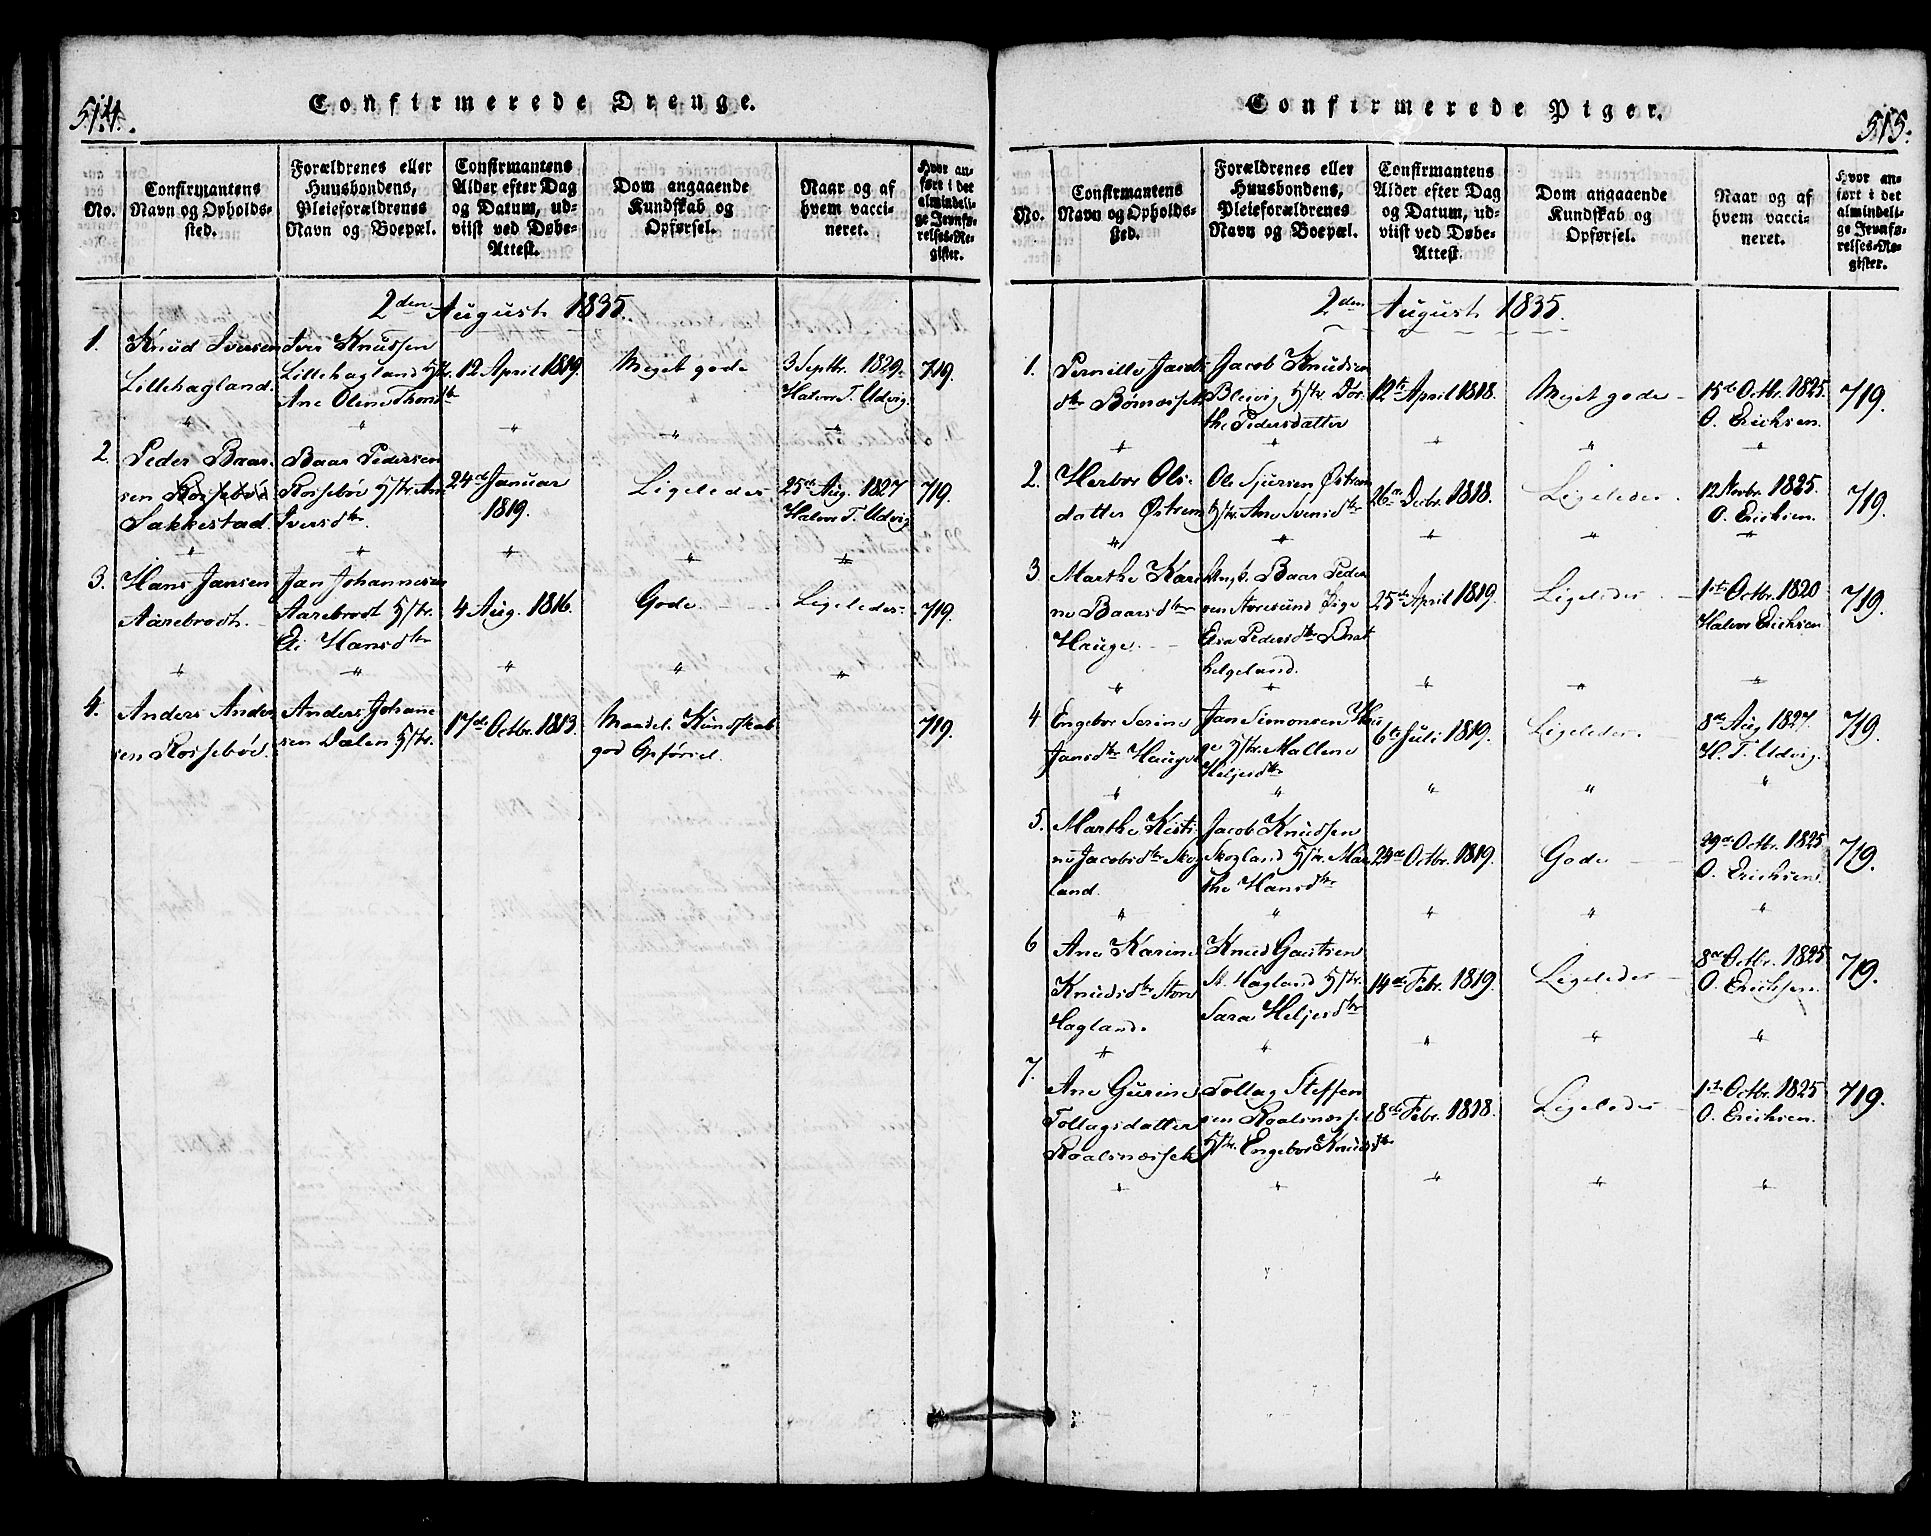 514.
Confirmerede Drenge.
No.
Confirmantens
Navn og Opholds-
sted.
Forældrenes eller
Huusbondens,
Pleieforældrenes
Navn og Boepæl.
Confirmantens
Alder efter Dag
og Datum, ud-
viist ved Døbe-
Attest.
Dom angaaende
Kundskab og
Opførsel.
Naar og af
hvem vacci-
neret.
Hvor an-
ført i det
almindeli-
ge Jevnfø-
relses-Re-
gister.
2den August 1835.
1.
Knud Iversen
Lillehagland.
Iver Knudsen
Lillehagland Hstr.
Ane Olene Thorsdtr
12 April 1819.
Meget gode
3 Septbr. 1829.
Halvor T. Udvig.
719.
2.
Peder Baar-
sen Rossebøe
Sakkestad.
Baar Pedersen
Rossebøe Hstr. An
Iversdtr.
24de Januar
1819.
Ligeledes
25de Aug. 1827
Halvor T. Udvig
719.
3.
Hans Jansen
Aarebrodt.
Jan Johannesen
Aarebrodt Hstr.
Eli Hansdtr
4 Aug. 1816.
Gode.
Ligeledes
719.
4.
Anders Ander
sen Rossebøe
Anders Johane
sen Dalen Hstr.
17de Octbr. 1813.
Maadel. Kundskab
god Opførsel.
719.
515.
Confirmerede Piger.
No.
Confirmantens
Navn og Opholds-
sted.
Forældrenes eller
Huusbondens,
Pleieforældrenes
Navn og Boepæl.
Confirmantens
Alder efter Dag
og Datum, ud-
viist ved Døbe-
Attest.
Dom angaaende
Kundskab og
Opførsel.
Naar og af
hvem vacci-
neret.
Hvor an-
ført i det
almindeli-
ge Jevnfø-
relses-Re-
gister.
2den August 1835.
1.
Pernille Jacobs
dtr Bømesset
Jacob Knudsen
Bleivig Hstr. Dor
the Pedersdatter
12te April 1818.
Meget gode
15de Octbr. 1825.
O. Erichsen.
719.
2.
Herbor Ols-
datter Østrem
Ole Sjursen Østrem
Hstr. Ane Svensdtr
26de Decbr. 1818.
Ligeledes
12 Novbr. 1825.
O. Erichsen.
719.
3
Marthe Kari
ne Baarsdtr
Hauge.
Ungk. Baar Peder
sen Storesund Pige
Eva Pedersdtr Brat
helgeland.
25de April 1819.
Ligeledes
1ste Octbr. 1820
Halvor Erichsen
719.
4
Engebor Serine
Jansdtr Hauge
Jan Simonsen Hau
ge Hstr. Mallene
Heljesdtr
6te Juli 1819.
Ligeledes
8de Aug 1827.
H. T. Udvig.
719.
5.
Marthe Kisti
ne Jacobsdtr Skog
land.
Jacob Knudsen
Skogland Hstr. Mar
the Hansdtr
24de Octbr. 1819.
Gode
29de Octbr. 1825
O. Erichsen.
719.
6
Ane Karine
Knudsdtr Store
Hagland.
Knud Gautsen
St. Hagland Hstr.
Sara Heljesdtr
14de Febr. 1819.
Ligeledes
8de Octbr. 1825
O. Erichsen.
719.
7.
Ane Gurine
Tollagsdatter
Roalsnæsset
Tollag Steffen
sen Roalsnæsset
Hstr. Engebor Knudsdtr
8de Febr. 1818.
Ligeledes
1ste Octbr. 1825
O. Erichsen.
719.